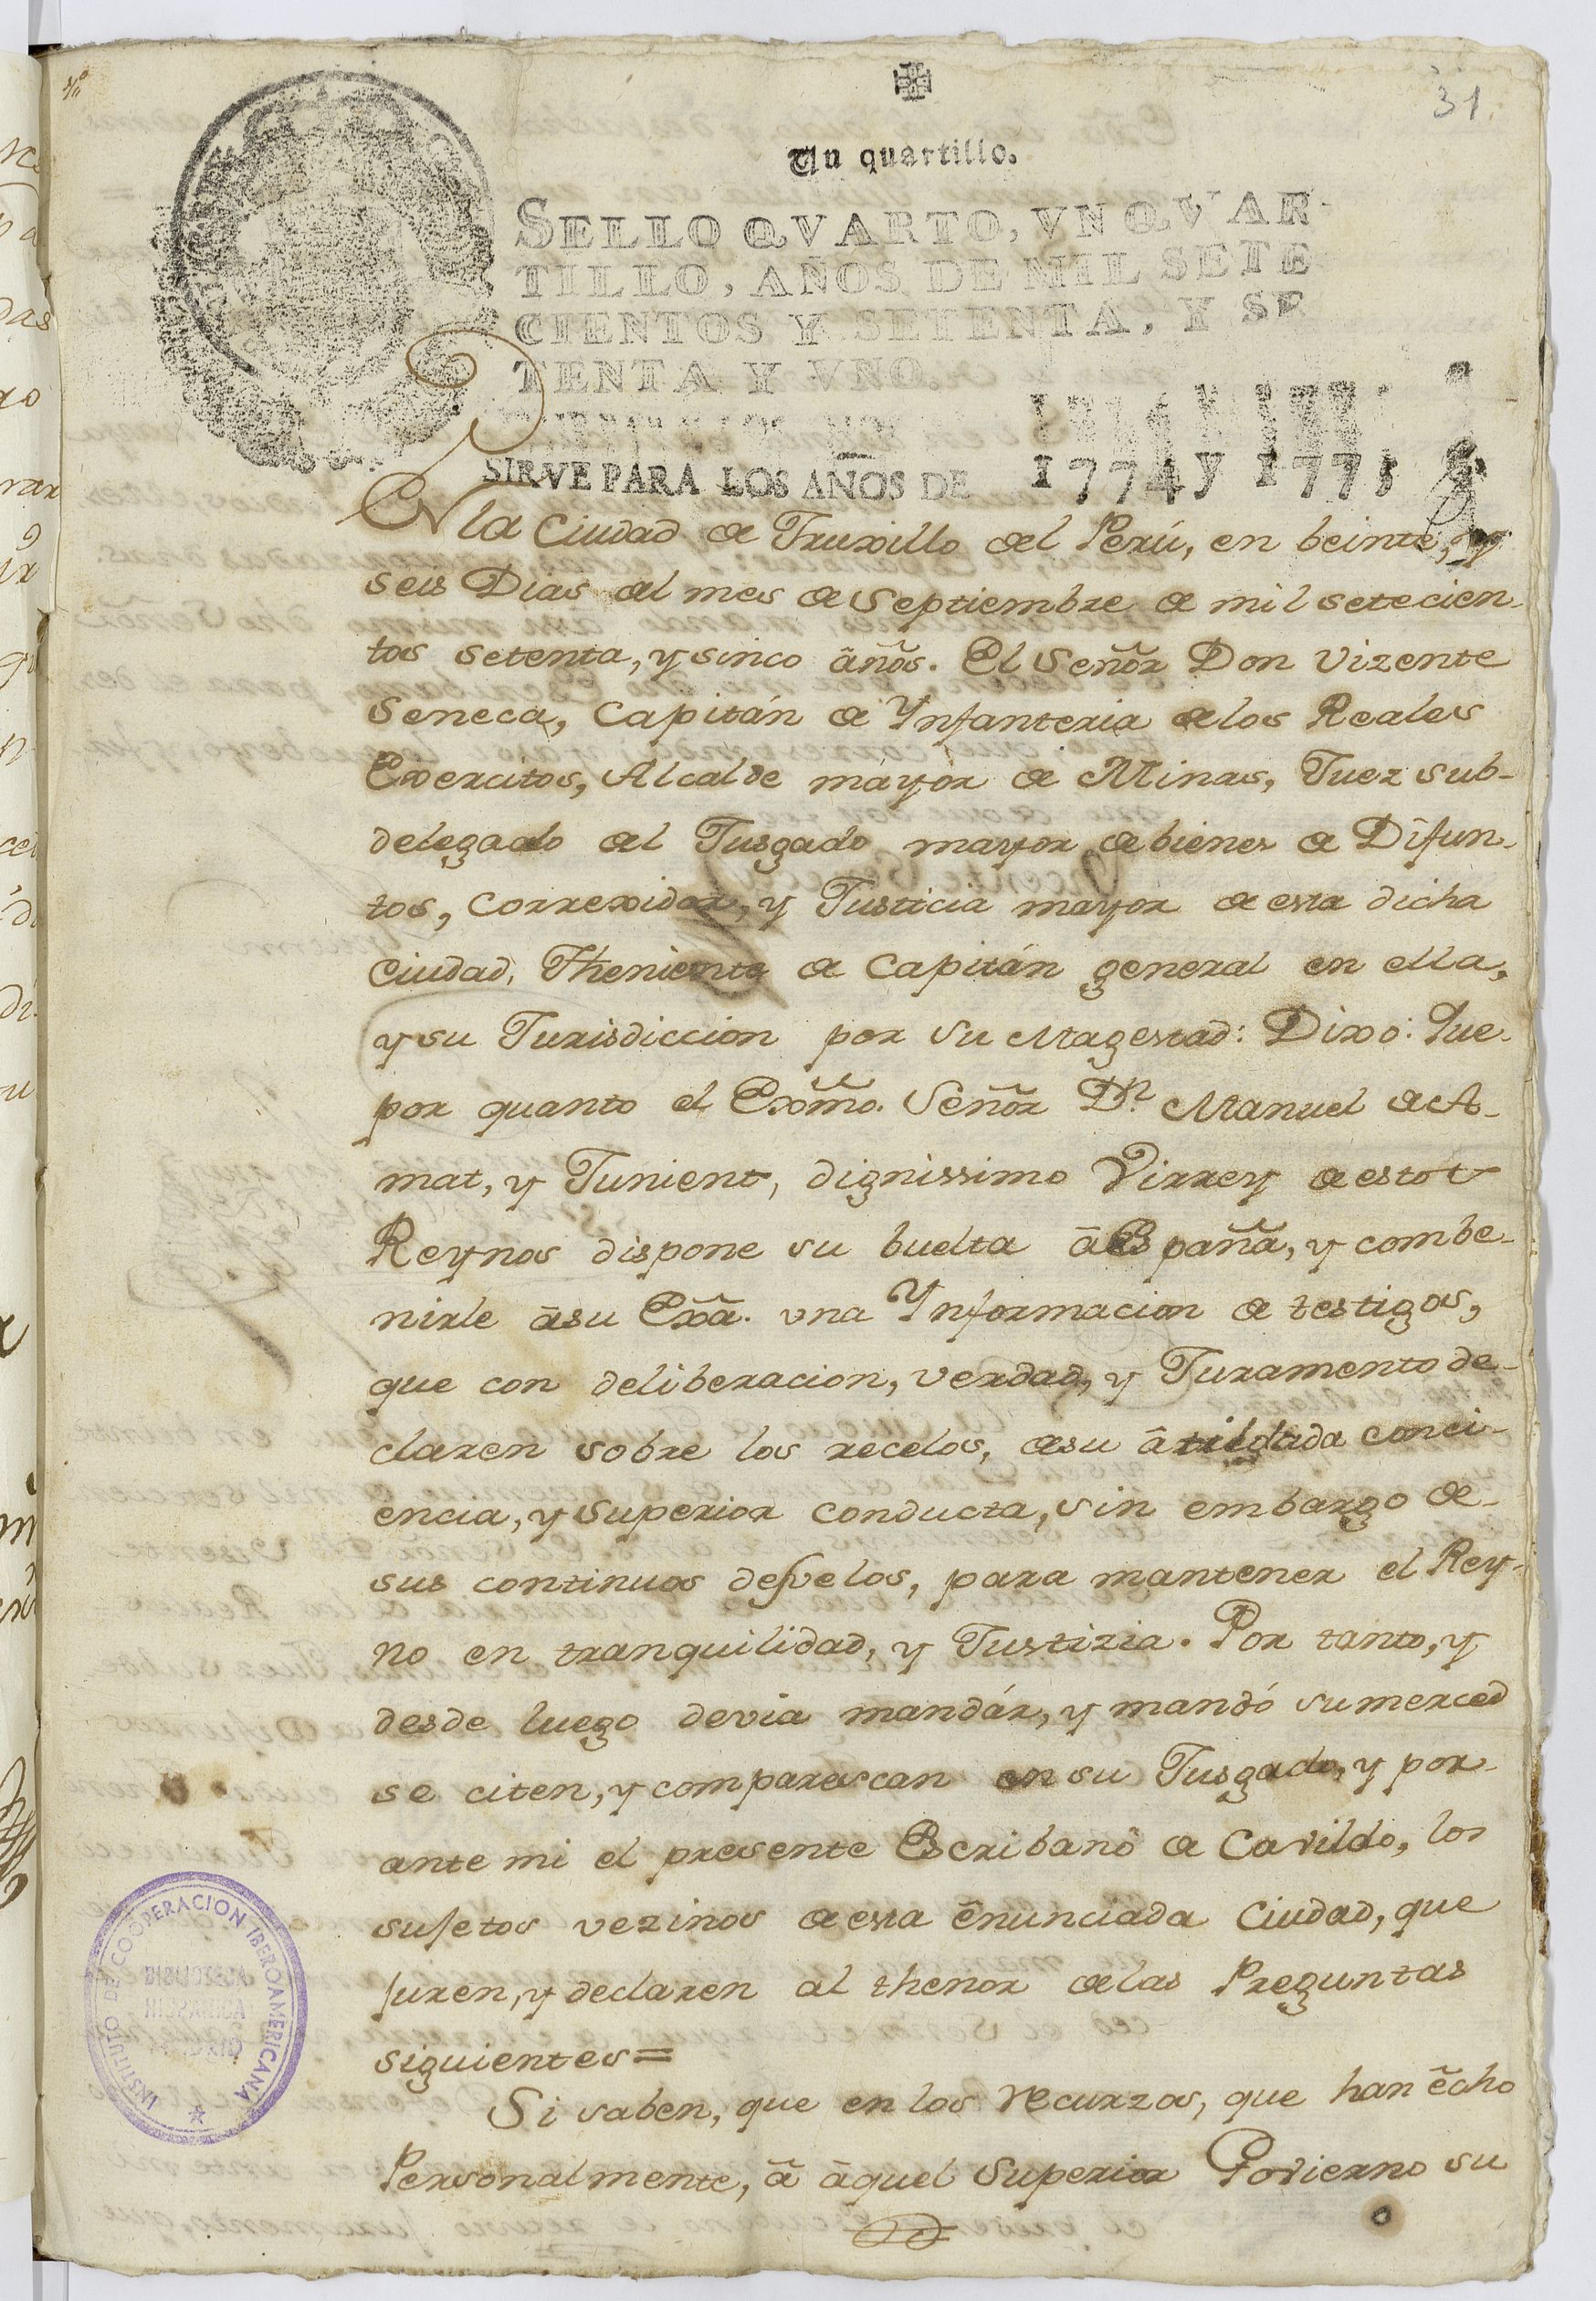 31
Un quartillo.
SELLO QVARTO, VN QVAR-
TILLO, AÑOS DE MIL SETE
CIENTOS Y SETENTA, Y SE
TENTA Y VNO.
SIRVE PARA LOS AÑOS DE 1774 y 1775
EN la Ciudad de Truxillo del Perú, en beinte, y
seis Dias del mes de Septiembre de mil setecien-
tos setenta, y sinco años. El Señor Don Vizente
Seneca, Capitán de Ynfanteria de los Reales
Exercitos, Alcalde mayor de Minas, Juez sub-
delegado del Jusgado mayor de bienes de Difun-
tos, Correxidor, y Justicia mayor de esta dicha
Ciudad, Theniente de Capitán general en ella,
y su Jurisdiccion por su Magestad: Dixo: Que
por quanto el Exmo. Señor Dn. Manuel de A-
mat, y Junient, dignissimo Virrey de estos
Reynos dispone su buelta á España, y combe-
nirle ásu Exa. una Ynformacion de testigos,
que con deliberacion, verdad, y Juramento de-
claren sobre los recelos, desu átildada conci-
encia, y superior conducta, sin embargo de
sus continuos desvelos, para mantener el Rey-
no en tranquilidad, y Justizia. Por tanto, y
desde luego devia mandár, y mandó su merced
se citen, y comparescan en su Jusgado, y por
ante mi el presente Escribano de Cavildo, los
sujetos vezinos de esta enunciada Ciudad, que
juren, y declaren al thenor de las Preguntas
siguientes=
Si saben, que en los recurzos, que han echo
Personalmente, á áquel Superior Govierno su
INSTITUTO DE COOPERACION IBEROAMERICANA
BIBLIOTECA
HISPANICA
MADRID